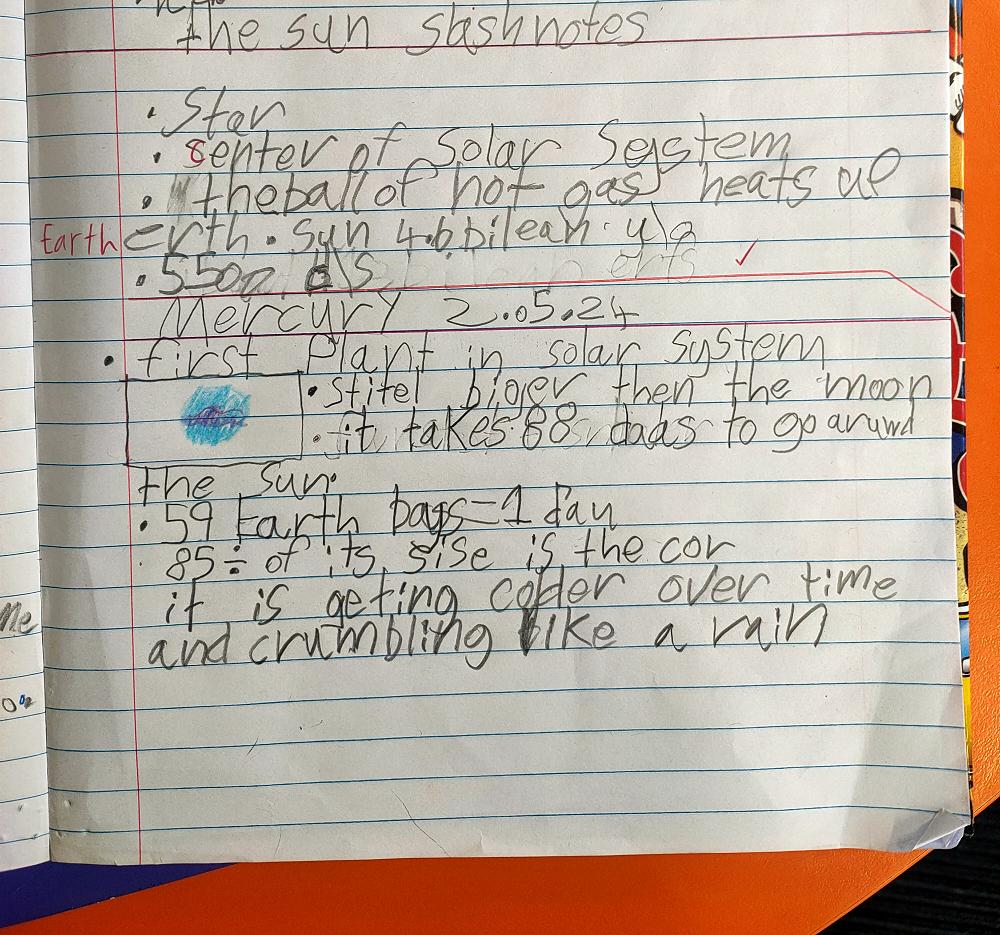 the sun slashnotes
• Star
• Senter of Solar Seystem
• the ball of hot gas heats up
Earth erth • sun 4.6 bilean y\o
• 5500 d\s
Mercury 2.05.24
• first Plant in solar system
• stitel biger then the moon
• it takes 88 daas to go aruwd
the sun.
• 59 Earth bays = 1 day
85÷ of its sise is the cor
it is geting colder over time
and crumbling like a rain
Me